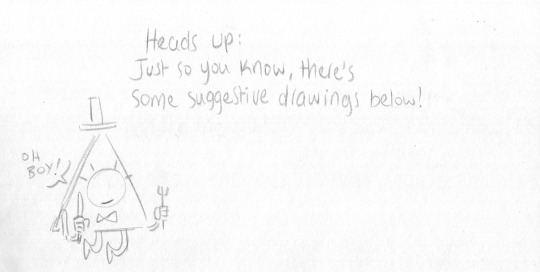 Heads up:
Just so you know, there's
some suggestive drawings below!
OH
BOY!